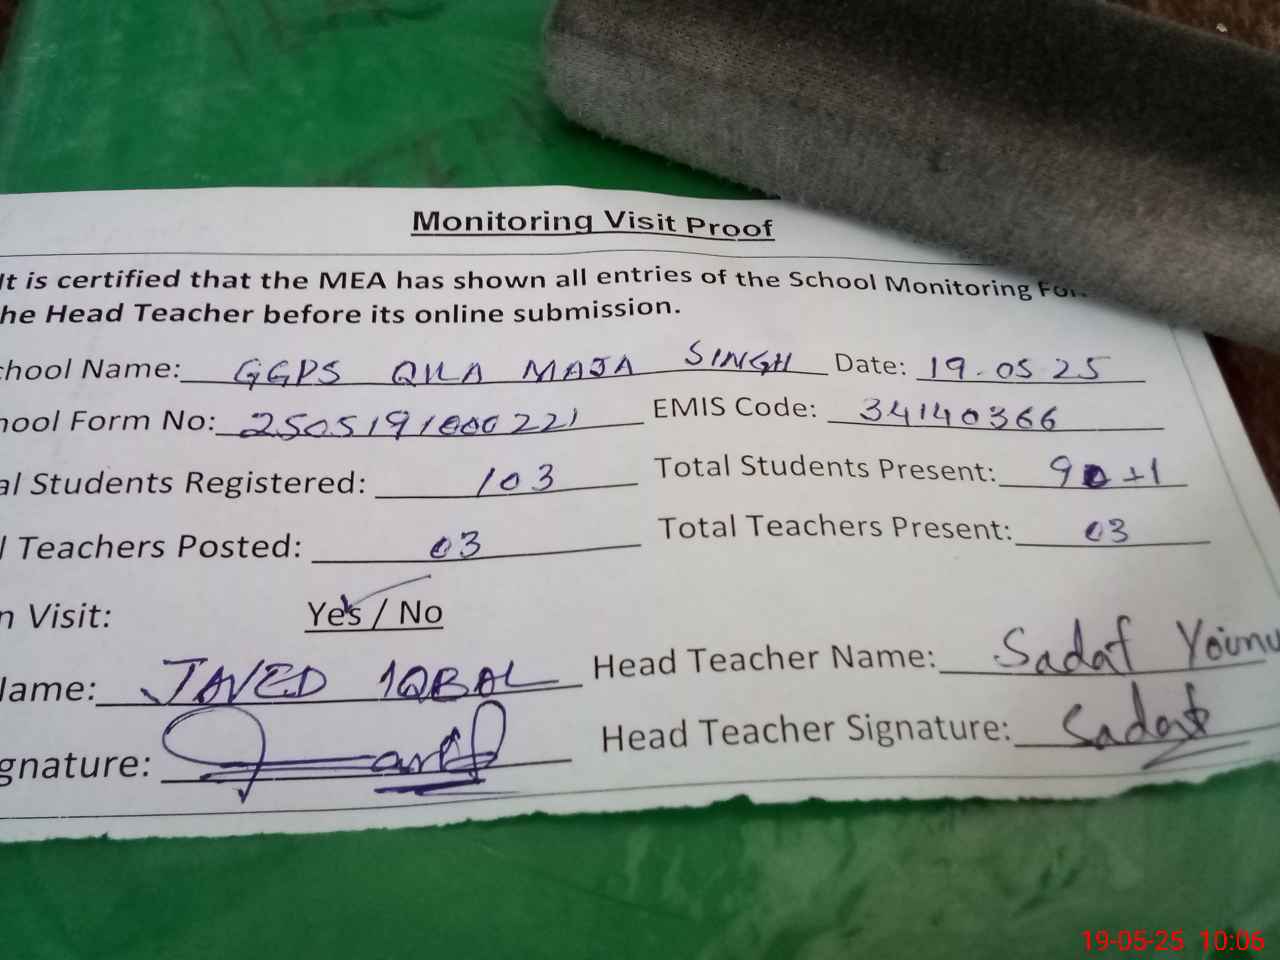 Monitoring Visit Proof
It is certified that the MEA has shown all entries of the School Monitoring For
he Head Teacher before its online submission.
chool Name: GGPS QILA MAJA SINGH Date: 19.05 25
hool Form No: 2505191000221 EMIS Code: 34140366
al Students Registered: 103 Total Students Present: 90+1
l Teachers Posted: 03 Total Teachers Present: 03
n Visit: Yes / No
Name: JAVED IQBAL Head Teacher Name: Sadaf
gnature: Head Teacher Signature: Sadaf
19-05-25 10:06